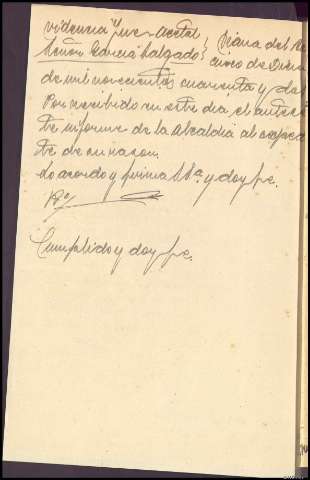 videncia Juez Acctal } Viana del
Señor García Salgado }
de mil novecientos cuarenta y
Por recibido en este día, el antece
te informe de la Alcaldía al expe
te de su razon.
Lo acordo y firma S.Sª. y doy fe.
Cumplido y doy fe.